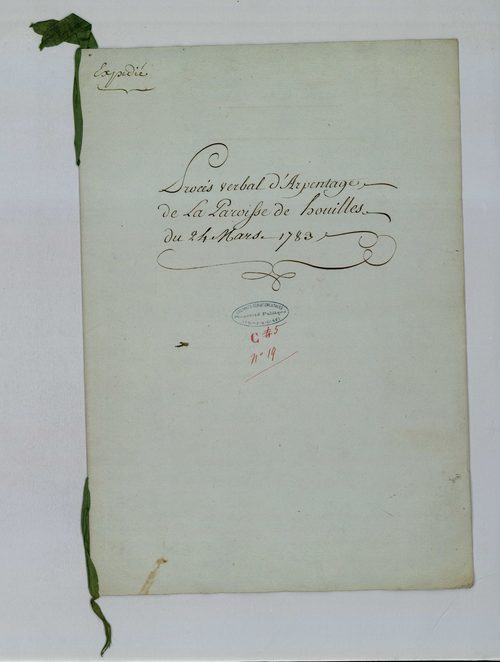 Expédié
Procès verbal d'Arpentage
de La Paroisse de houilles
du 24 Mars 1783
C 45
n° 19